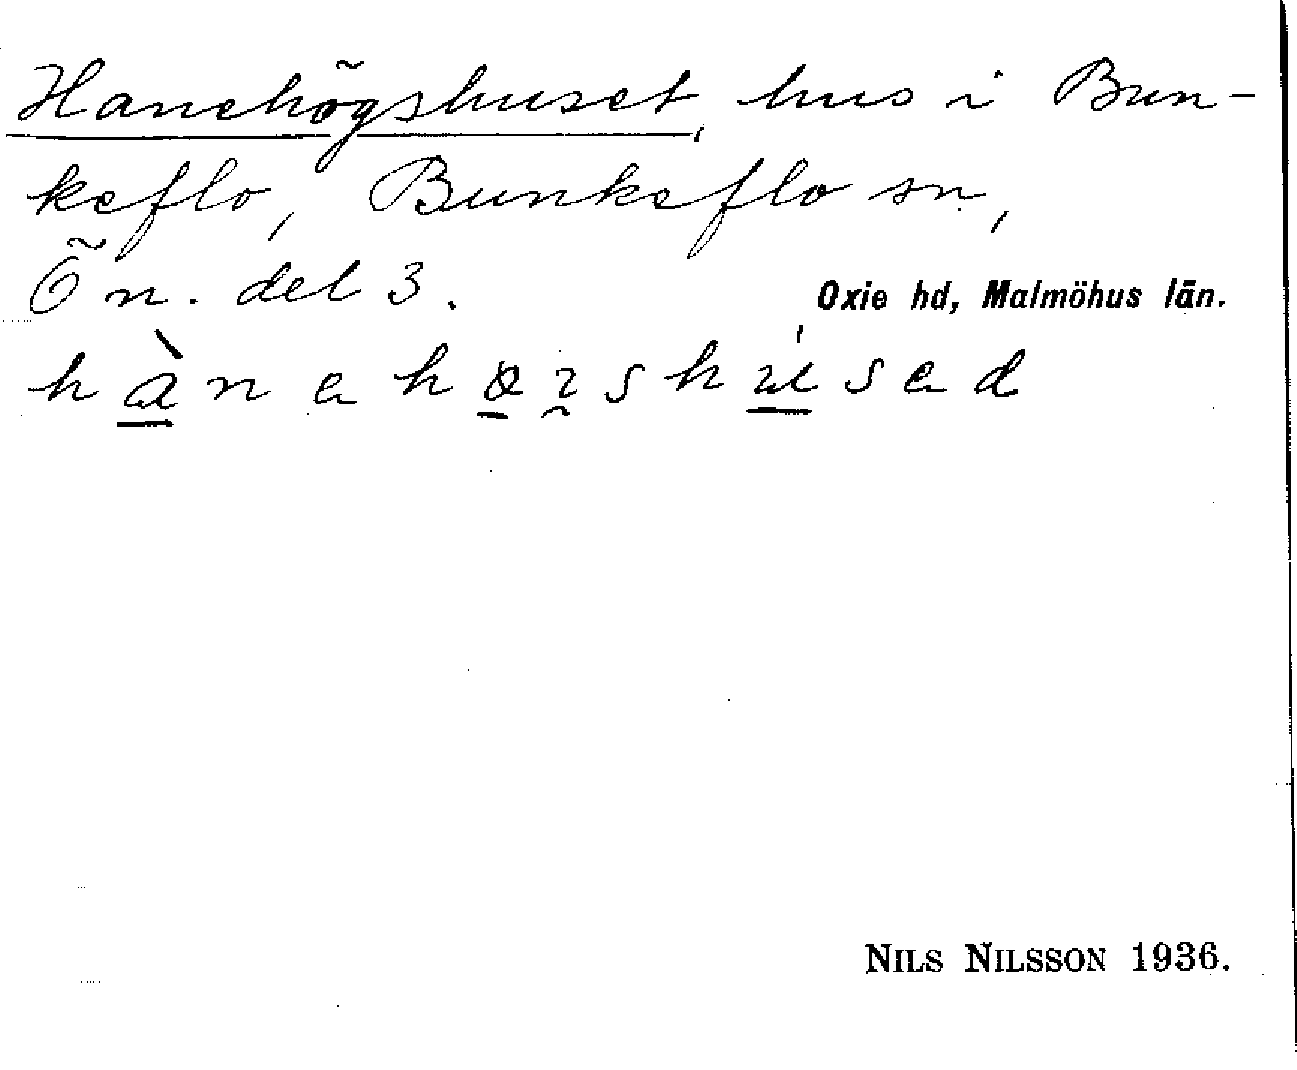 Hanehögshuset, hus i Bun-
keflo, Bunkeflo sn,
Ön. del 3.
Oxie hd, Malmöhus län.
NILS NILSSON 1936.